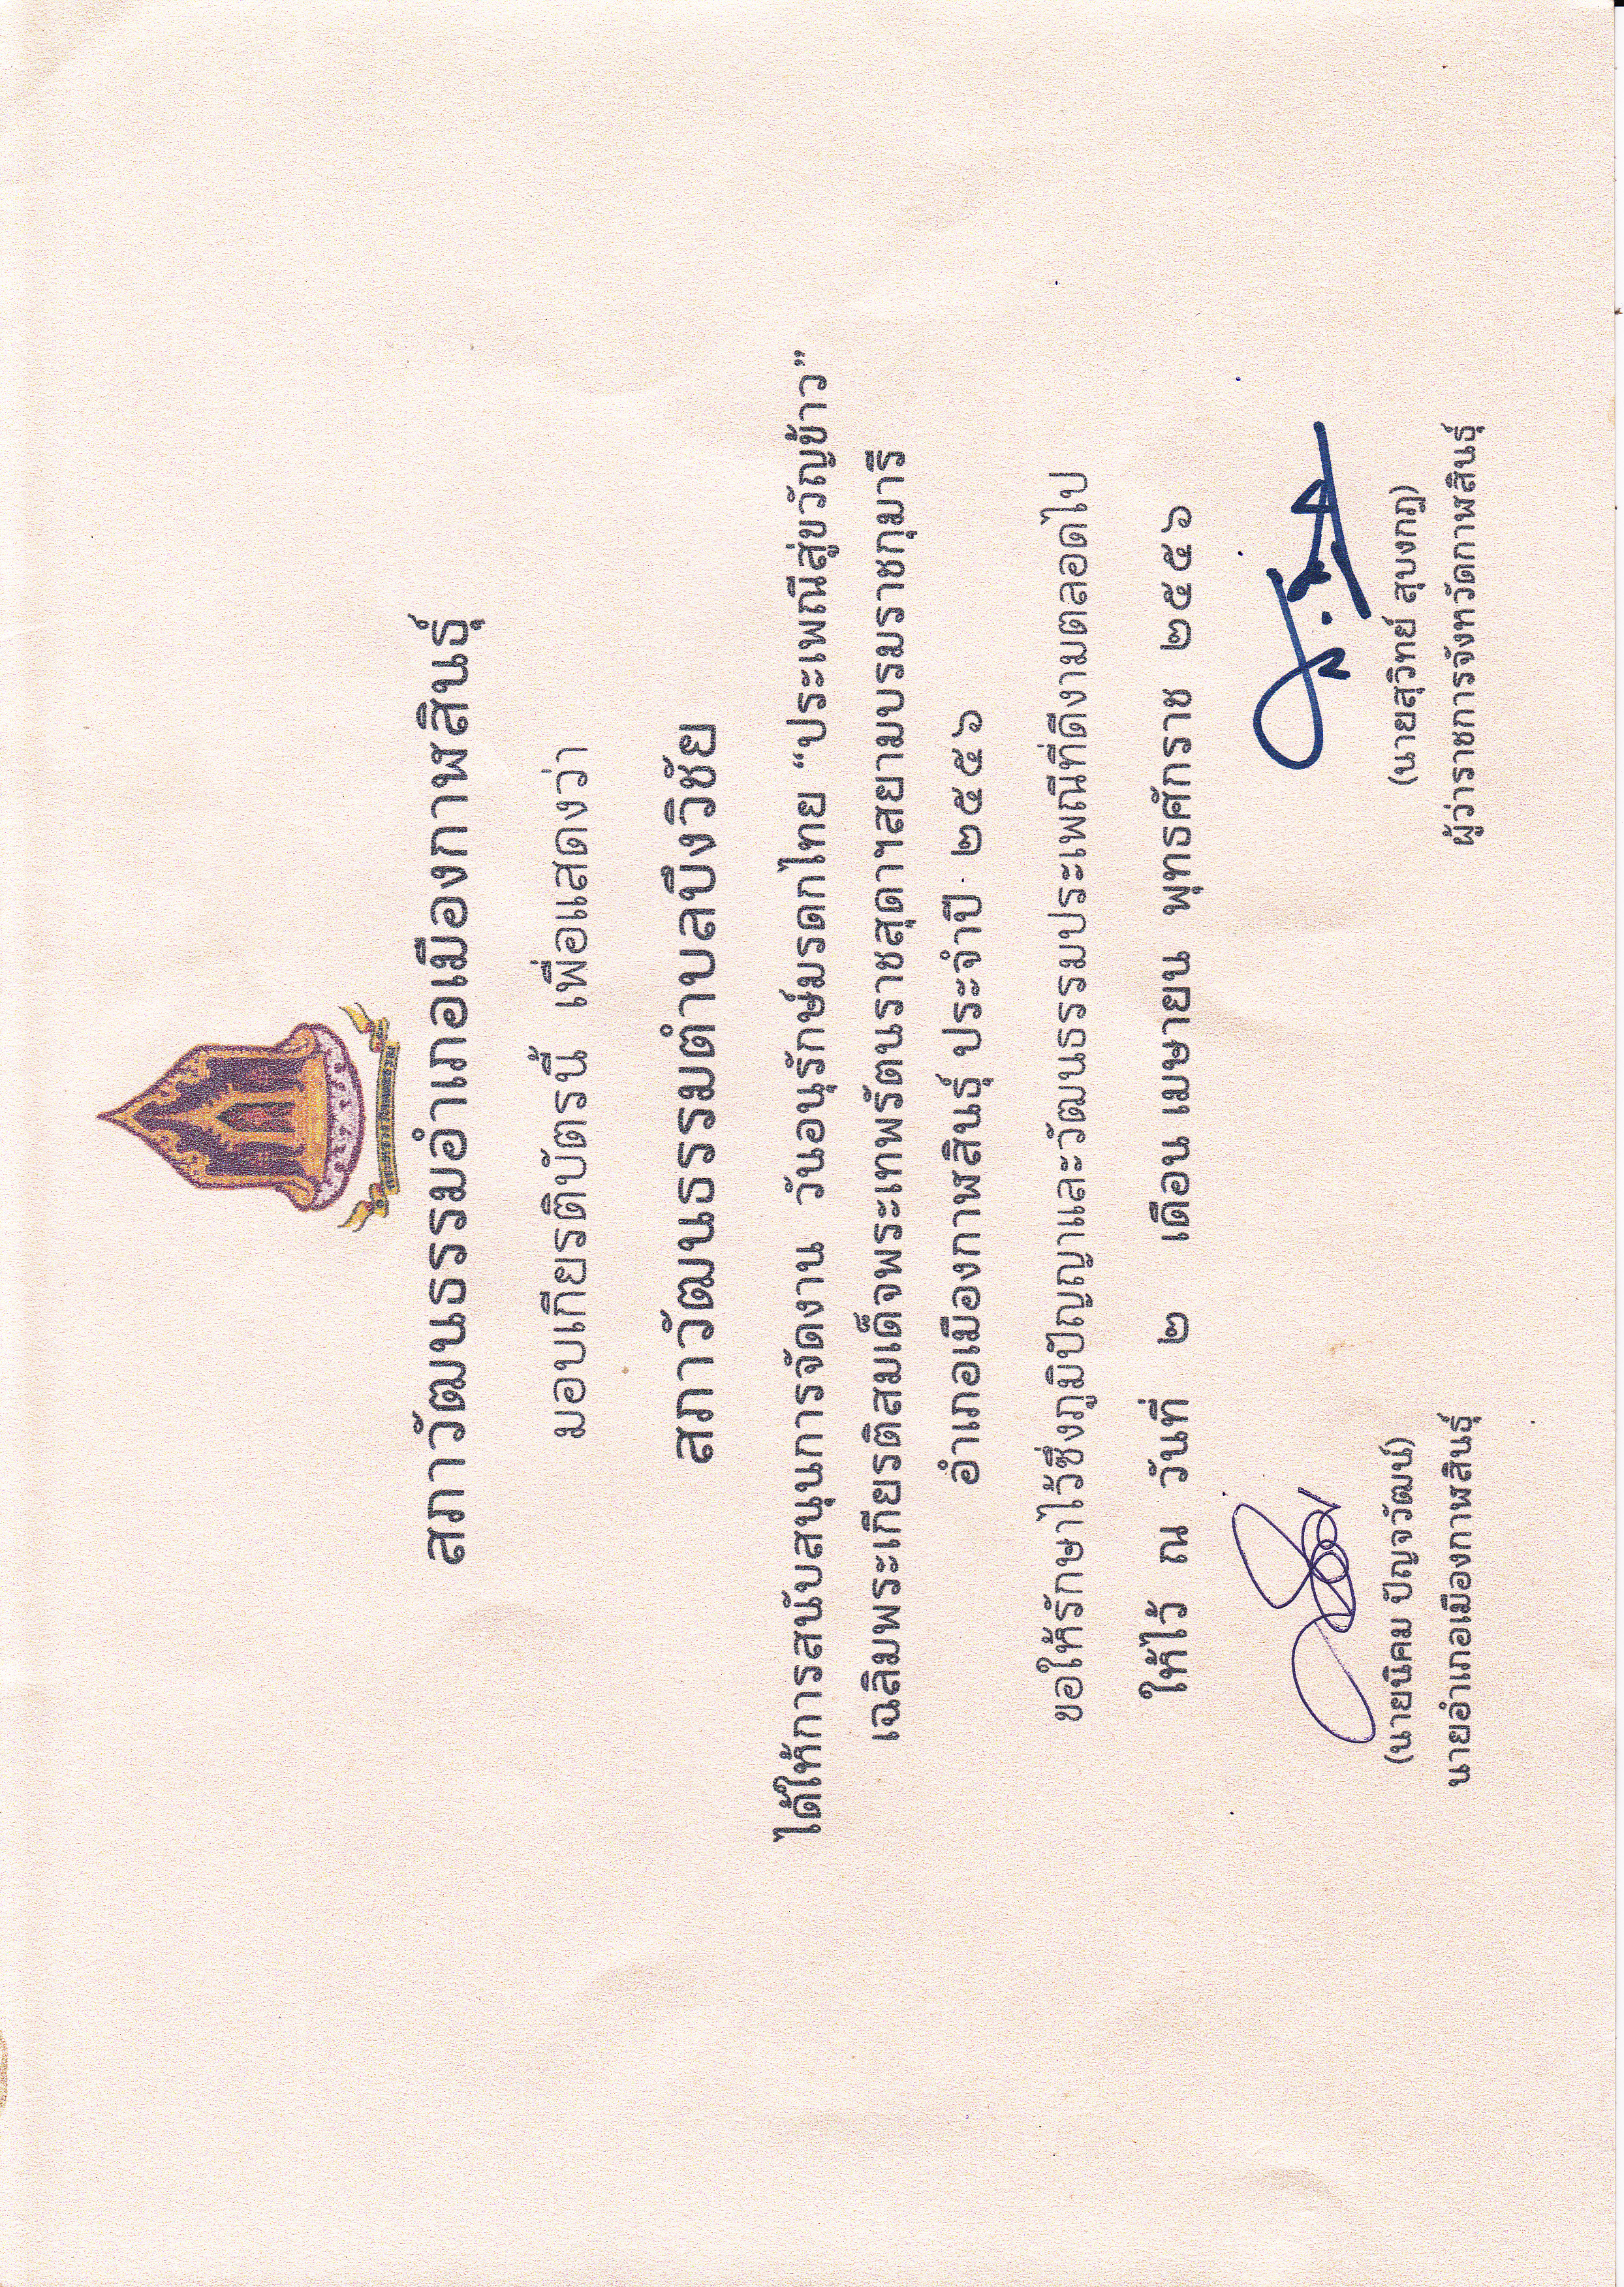 สภาวัฒนธรรมอำเภอเมืองกาฬสินธุ์
มอบเกียรติบัตรนี้ เพื่อแสดงว่า
สภาวัฒนธรรมตำบลบึงวิชัย
ได้ให้การสนับสนุนการจัดงาน วันอนุรักษ์มรดกไทย “ประเพณีสู่ขวัญข้าว”
เฉลิมพระเกียรติสมเด็จพระเทพรัตนราชสุดาฯสยามบรมราชกุมารี
อำเภอเมืองกาฬสินธุ์ ประจำปี ๒๕๕๖
ขอให้รักษาไว้ซึ่งภูมิปัญญาและวัฒนธรรมประเพณีที่ดีงามตลอดไป
ให้ไว้ ณ วันที่ ๒ เดือน เมษายน พุทธศักราช ๒๕๕๖
(นายนิคม ปัญจวัฒน์) (นายสุวิทย์ สุบงกฎ)
นายอำเภอเมืองกาฬสินธุ์ ผู้ว่าราชการจังหวัดกาฬสินธุ์